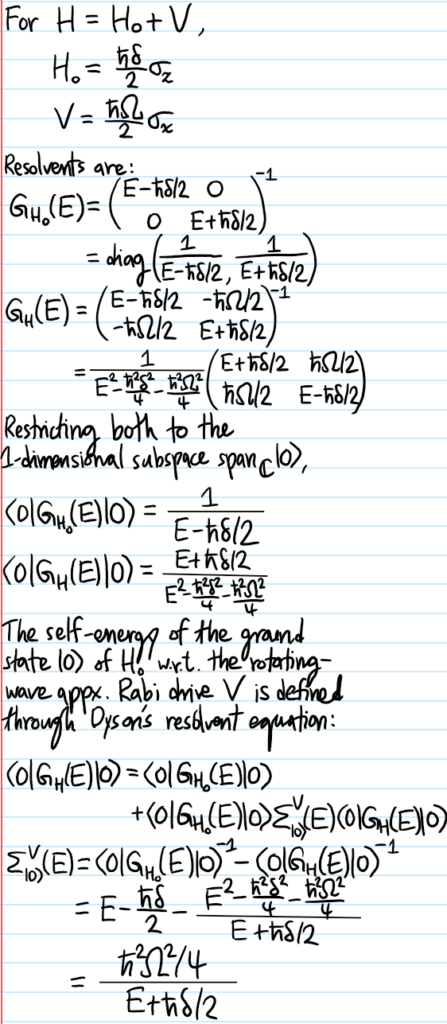 For H = H₀ + V,
H₀ = ħδ/2 σ_z
V = ħΩ/2 σ_x
Resolvents are:
G_{H₀}(E) = (E-ħδ/2 0
0 E+ħδ/2)^{-1}
= diag(1/(E-ħδ/2), 1/(E+ħδ/2))
G_H(E) = (E-ħδ/2 -ħΩ/2
-ħΩ/2 E+ħδ/2)^{-1}
= 1/(E²-ħ²δ²/4-ħ²Ω²/4) (E+ħδ/2 ħΩ/2
ħΩ/2 E-ħδ/2)
Restricting both to the
1-dimensional subspace span_ℂ|0⟩,
⟨0|G_{H₀}(E)|0⟩ = 1/(E-ħδ/2)
⟨0|G_H(E)|0⟩ = (E+ħδ/2)/(E²-ħ²δ²/4-ħ²Ω²/4)
The self-energy of the ground
state |0⟩ of H₀ w.r.t. the rotating-
wave appx. Rabi drive V is defined
through Dyson's resolvent equation:
⟨0|G_H(E)|0⟩ = ⟨0|G_{H₀}(E)|0⟩
+⟨0|G_{H₀}(E)|0⟩Σ^V_{|0⟩}(E)⟨0|G_H(E)|0⟩
Σ^V_{|0⟩}(E) = ⟨0|G_{H₀}(E)|0⟩^{-1} - ⟨0|G_H(E)|0⟩^{-1}
= E - ħδ/2 - (E²-ħ²δ²/4-ħ²Ω²/4)/(E+ħδ/2)
= (ħ²Ω²/4)/(E+ħδ/2)